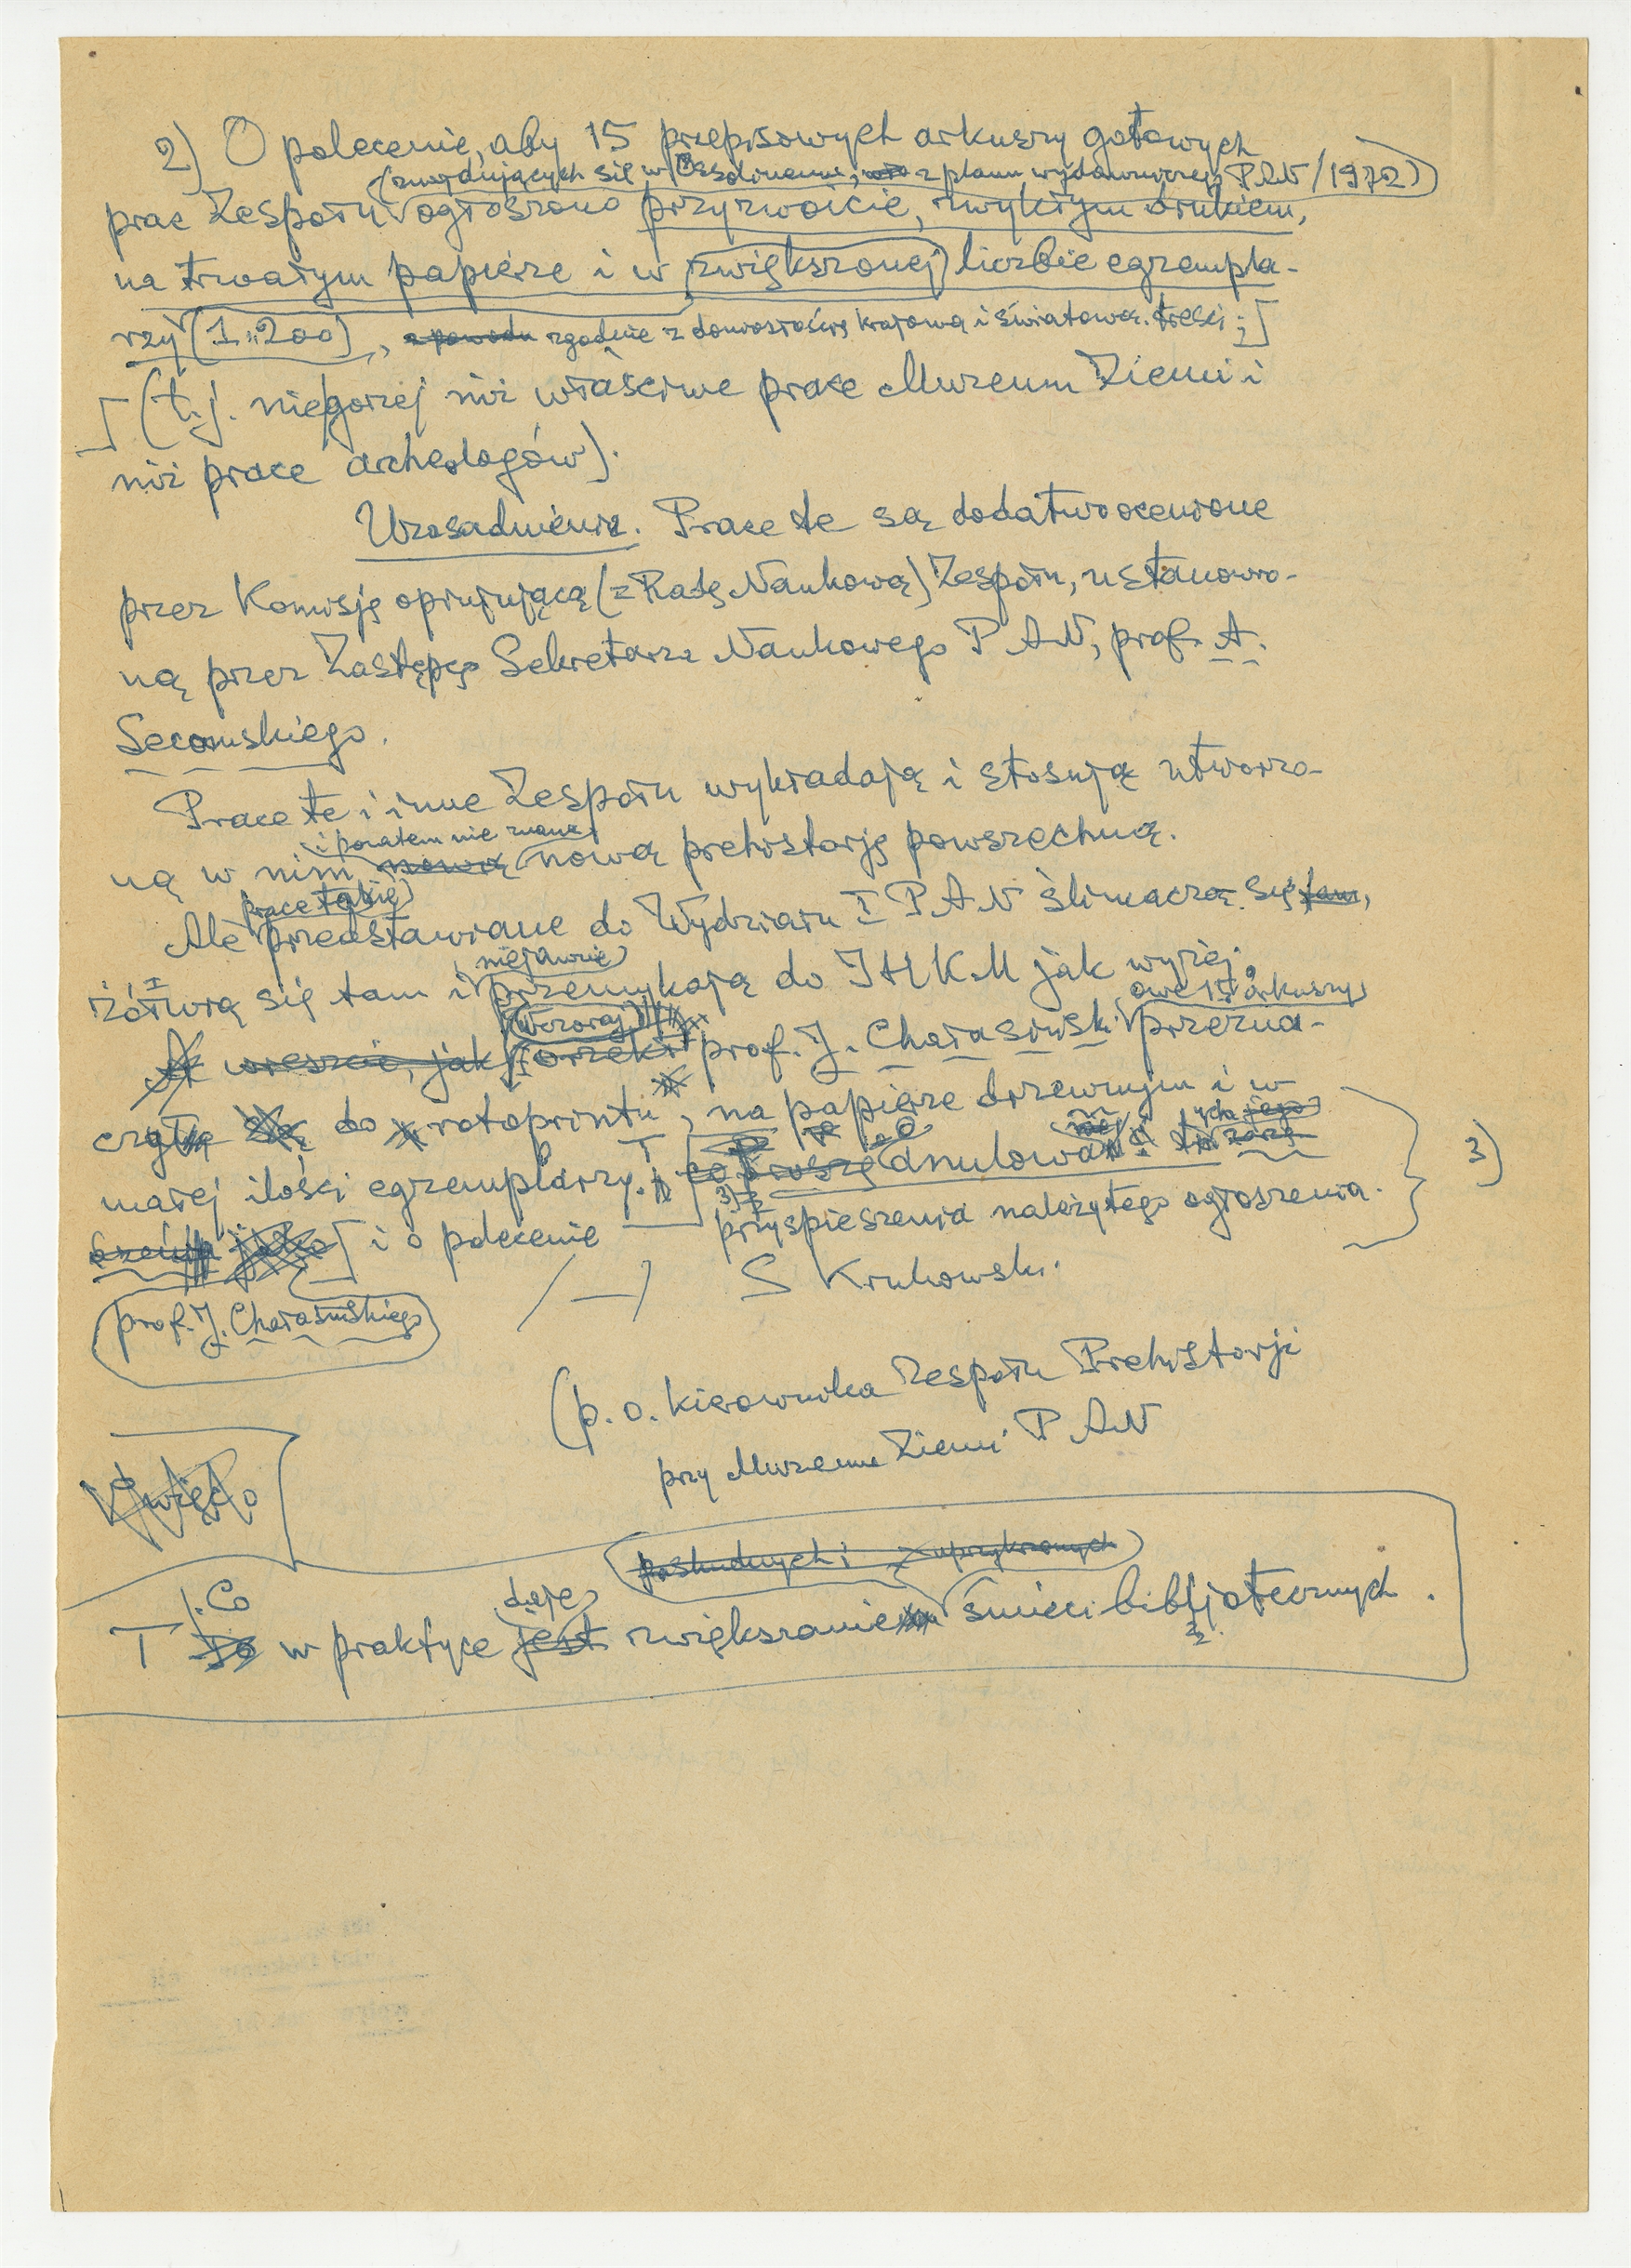 2) O polecenie, aby 15 przepisowych arkuszy gotowych
(znajdujących się w Ossolineum, z planu wydawniczego PAN/1972)
prac Zespołu ogłoszono przyzwoicie, zwykłym drukiem,
na trwałym papierze i w zwiększonej liczbie egzempla-
rzy (1.200), z powodu zgodnie z doniosłością krajową i światową treści;
(t.j. niegorzej niż właściwe prace Muzeum Ziemi i
niż prace archeologów).
Uzasadnienie. Prace te są dodatnio ocenione
przez Komisję opinjującą (z Radą Naukową) Zespołu, ustanowio-
ną przez Zastępcę Sekretarza Naukowego PAN, prof. A.
Secomskiego.
Prace te i inne Zespołu wykładają i stosują utworzo-
i pozatem nie znaną
ną w nim nową nową prehistorję powszechną.
prace takie
Ale przedstawiane do Wydziału I PAN ślimaczą się tam,
niejawnie
żółwią się tam i przemykają do IHKM jak wyżej.
Wczoraj owe 15 arkuszy
A wreszcie, jak orzekł prof. J. Chałasiński przezna-
czył są do rotoprintu, na papierze drzewnym i w
małej ilości egzemplarzy. T co proszę anulować
i o polecenie przyspieszenia należytego ogłoszenia. 3)
/—/ S Krukowski.
prof. J. Chałasińskiego
(p.o. kierownika Zespołu Prehistorji
przy Muzeum Ziemi PAN
więc
paskudnych i uprzykrzonych
Co daje
T To w praktyce jest zwiększanie śmieci bibljotecznych.